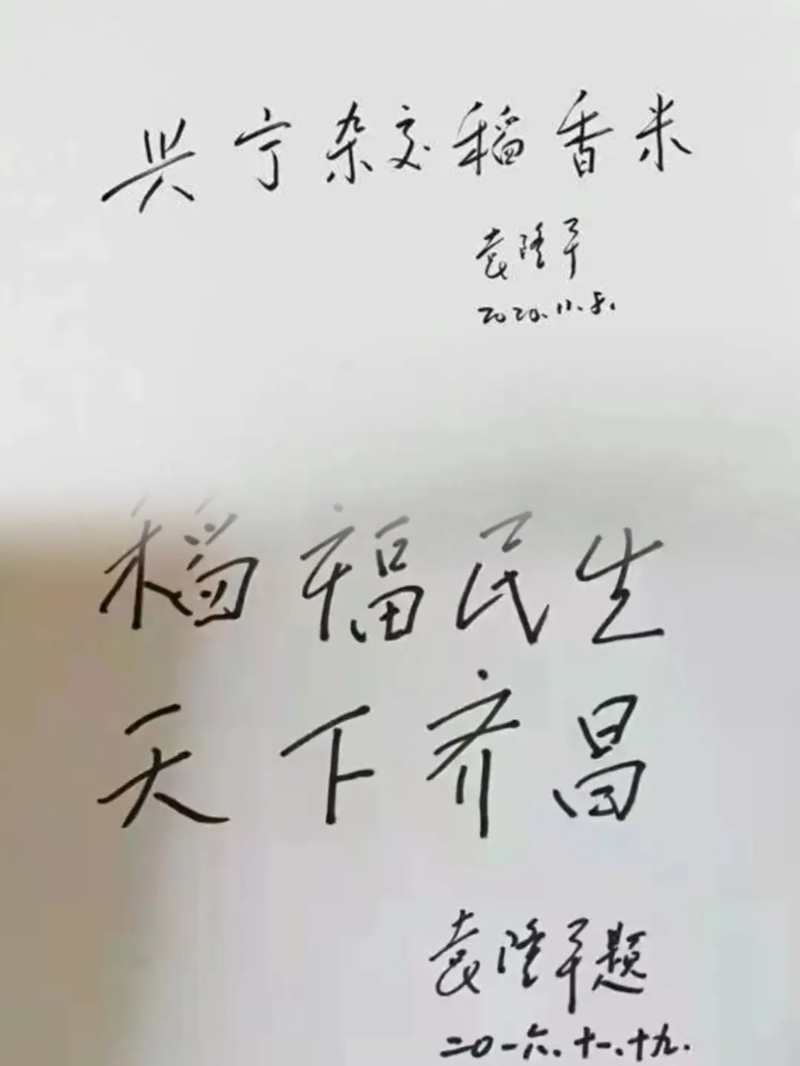 兴宁杂交稻香米
袁隆平
2020.11.5.
稻福民生
天下齐昌
袁隆平题
二〇一六.十一.十九.